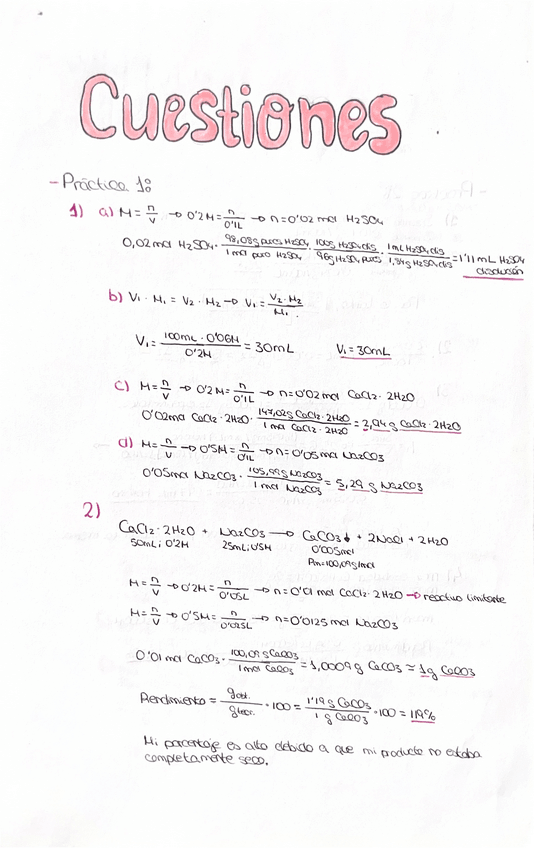 Cuestiones
- Práctica 1:
1) a) M = n/V → 0'2M = n/0'1L → n = 0'02 mol H2SO4
0,02 mol H2SO4 · 98,08g puros H2SO4/1 mol puro H2SO4 · 100g H2SO4 dis/96g H2SO4 puros · 1mL H2SO4 dis/1,84g H2SO4 dis = 1'11 mL H2SO4 disolución
b) V1 · M1 = V2 · M2 → V1 = V2 · M2/M1
V1 = 100mL · 0'06M/0'2M = 30mL V1 = 30mL
c) M = n/V → 0'2M = n/0'1L → n = 0'02 mol CaCl2 · 2H2O
0'02mol CaCl2 · 2H2O · 147,02g CaCl2 · 2H2O/1 mol CaCl2 · 2H2O = 2,94 g CaCl2 · 2H2O
d) M = n/V → 0'5M = n/0'1L → n = 0'05 mol Na2CO3
0'05mol Na2CO3 · 105,99g Na2CO3/1 mol Na2CO3 = 5,29 g Na2CO3
2)
CaCl2 · 2H2O + Na2CO3 → CaCO3↓ + 2NaCl + 2H2O
50mL; 0'2M 25mL; 0'5M 0'005mol
Pm = 100,09g/mol
M = n/V → 0'2M = n/0'05L → n = 0'01 mol CaCl2 · 2H2O → reactivo limitante
M = n/V → 0'5M = n/0'025L → n = 0'0125 mol Na2CO3
0'01 mol CaCO3 · 100,09 g CaCO3/1 mol CaCO3 = 1,0009 g CaCO3 ≃ 1g CaCO3
Rendimiento = g obt./g teor. · 100 = 1'19 g CaCO3/1 g CaCO3 · 100 = 119%
Mi porcentaje es alto debido a que mi producto no estaba
completamente seco.